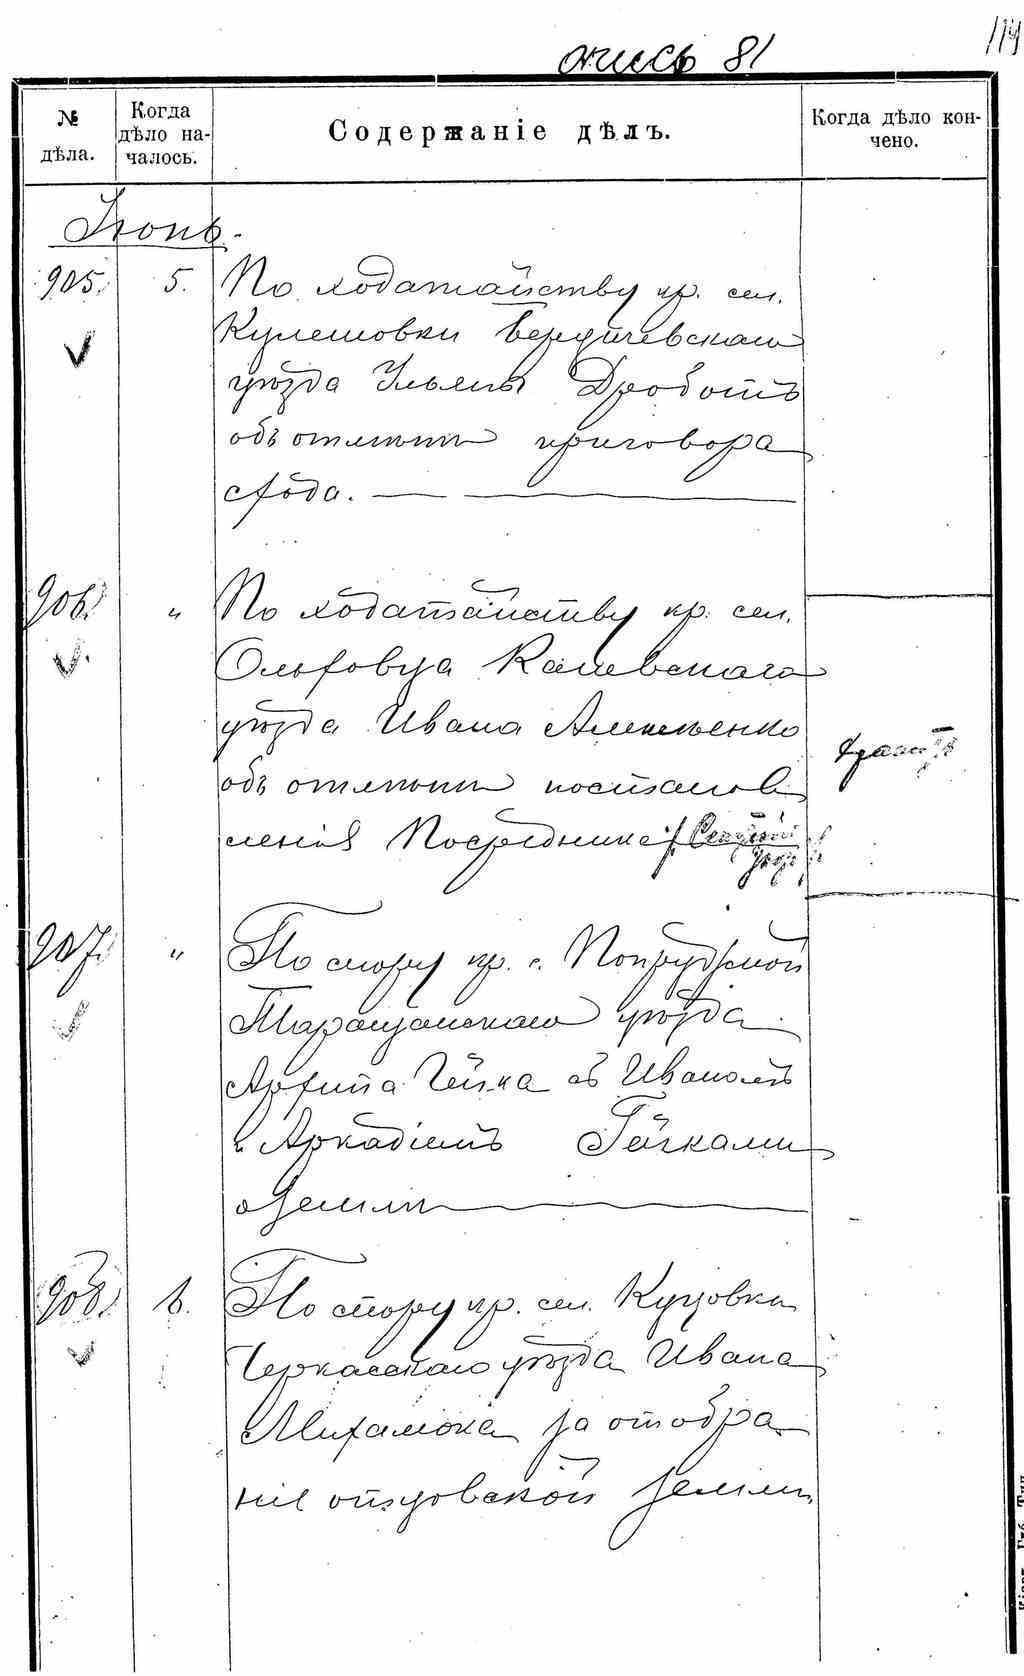 114
опись 81
№ дѣла.
Когда дѣло на-
чалось.
Содержаніе дѣлъ.
Когда дѣло кон-
чено.
Іюнь.
905. 5. По ходатайству кр. сел.
Кулешовки Бердичевскаго
уѣзда Ульяны Дроботъ
объ отмѣнѣ приговора
схода.
906. " По ходатайству кр. сел.
Ольховца Каневскаго
уѣзда Ивана
объ отмѣнѣ постанов
ленія Посредника
907. " По спору кр. с.
Таращанскаго уѣзда
Архипа Гачка съ Иваномъ
и Аркадіемъ Гачками
о земли
908. 6. По спору кр. сел. Куцовки
Черкасскаго уѣзда Ивана
Михалюка за отобра
ніе отцовской земли
Кіевъ. Губ. Тип.